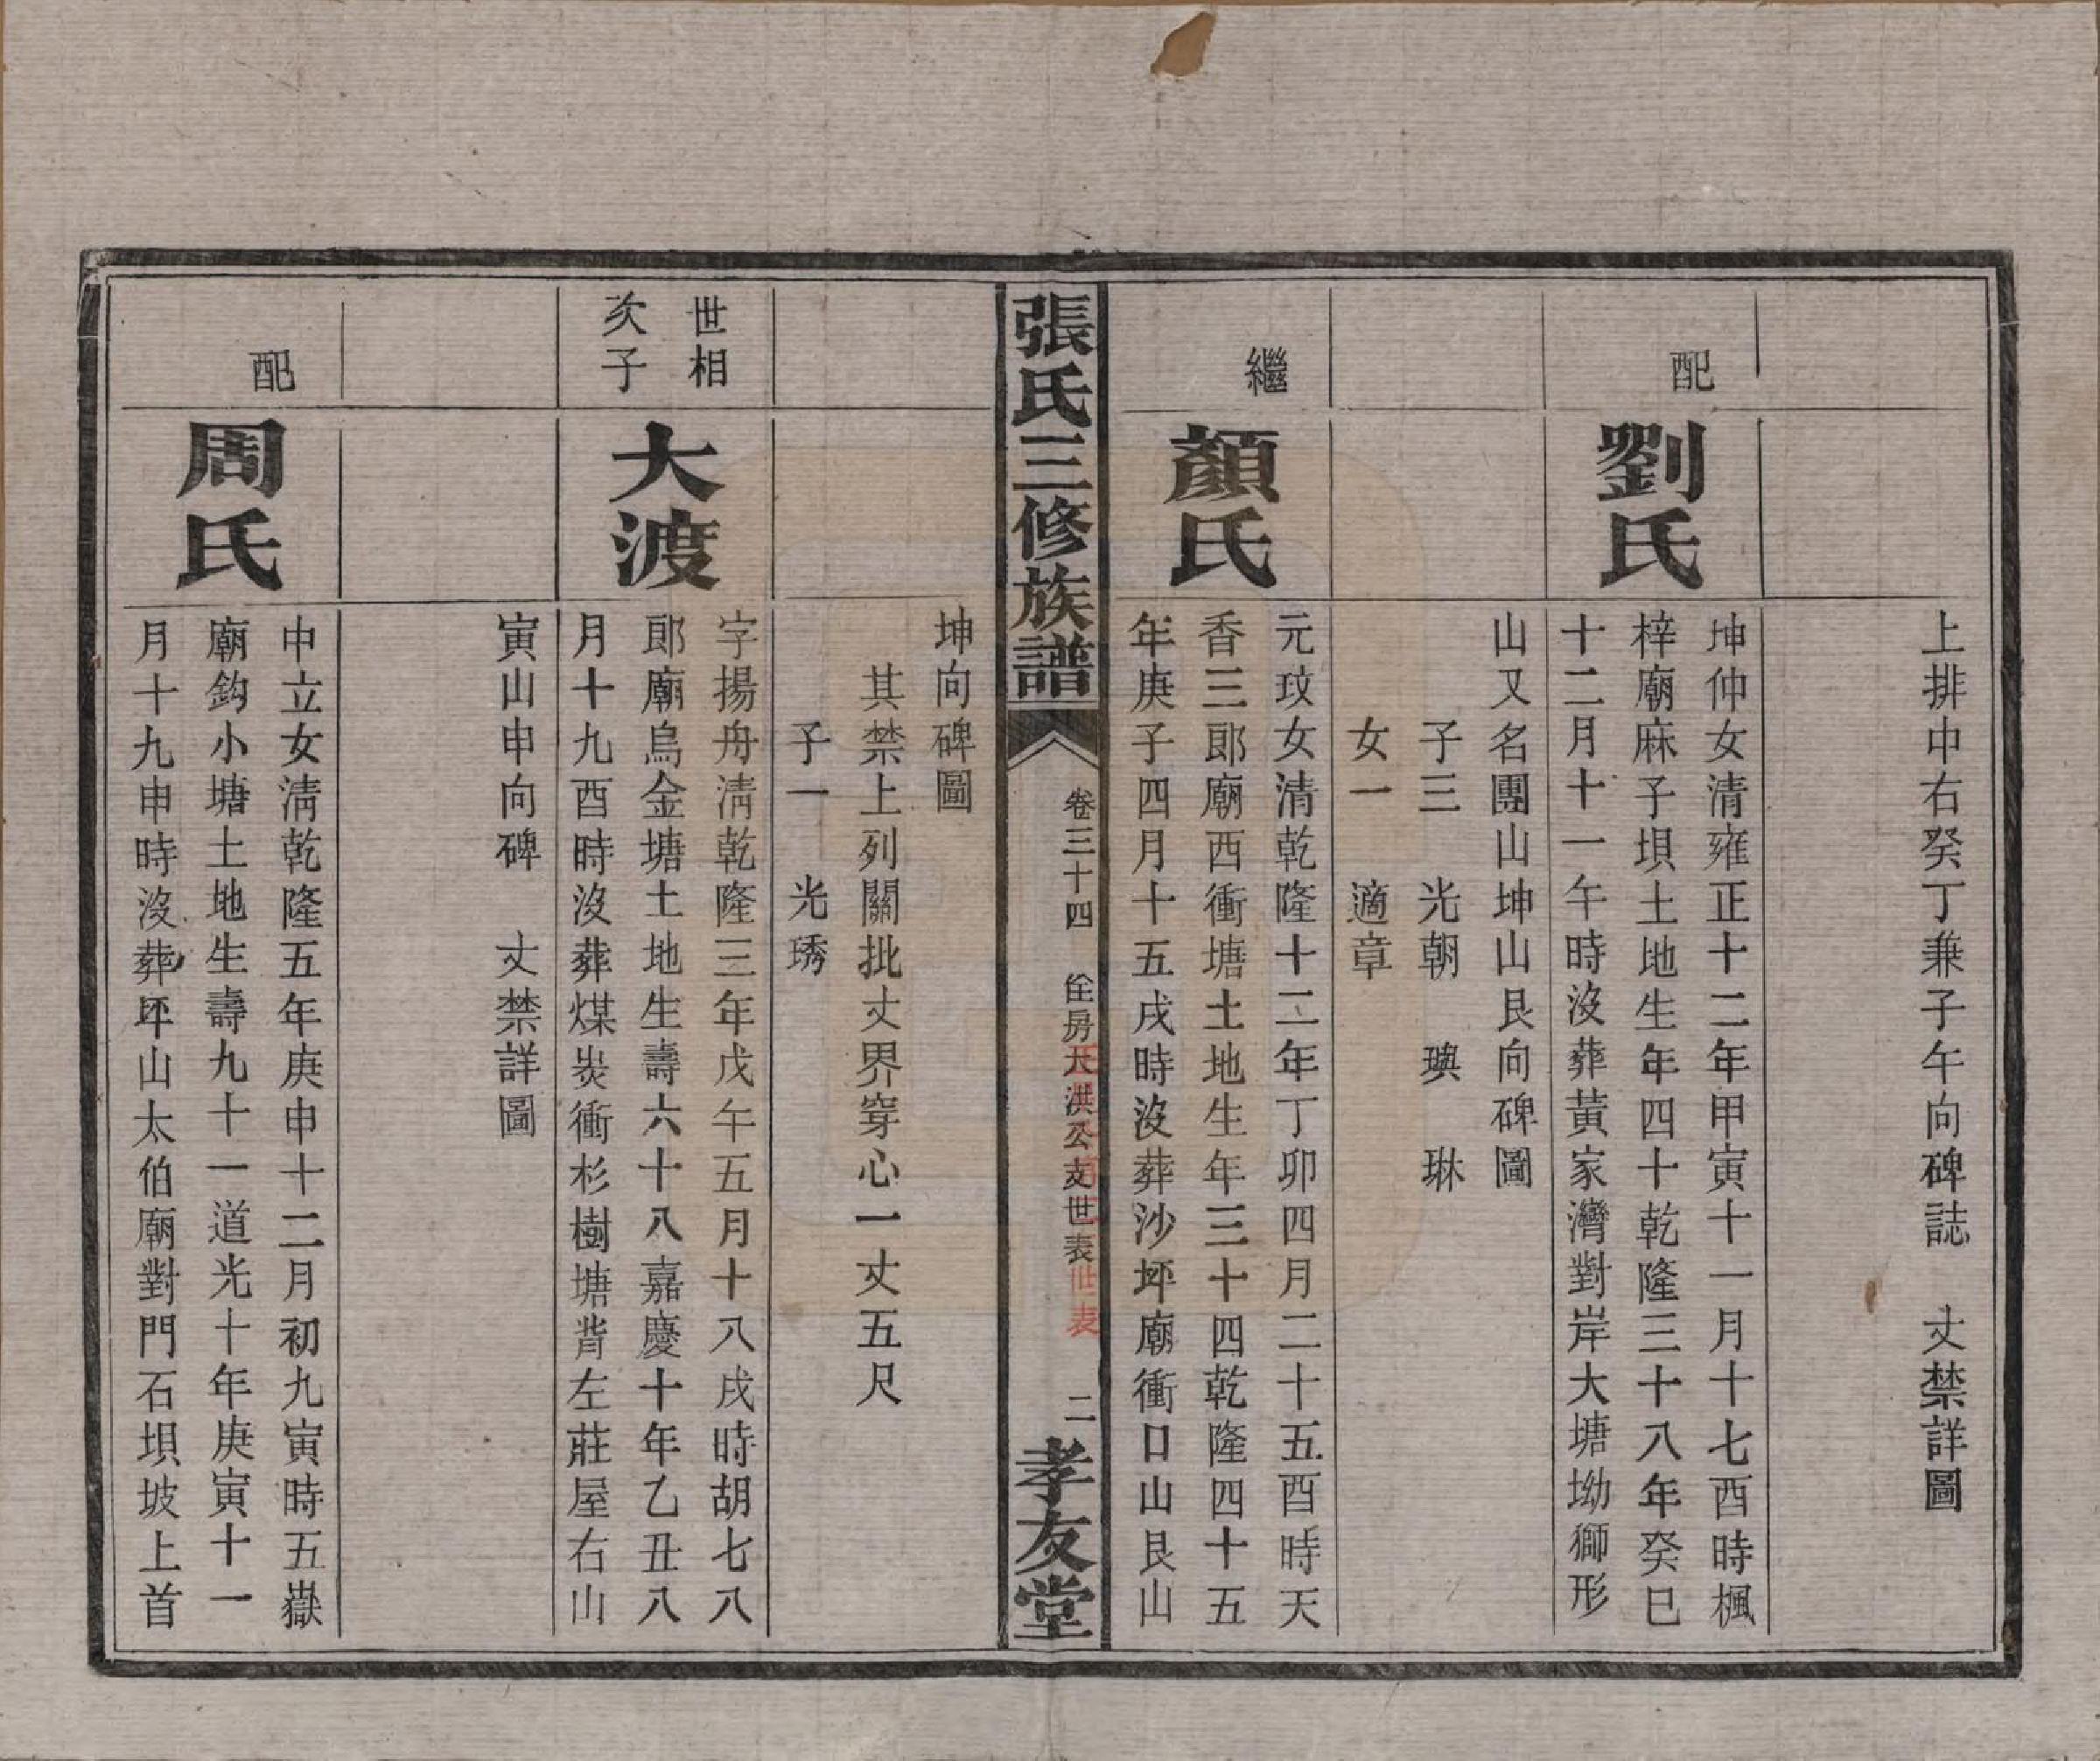 上排中右癸丁兼子午向碑誌　丈禁詳圖
配
劉氏
坤仲女清雍正十二年甲寅十一月十七酉時楓
梓廟麻子垻土地生年四十乾隆三十八年癸巳
十二月十一午時沒葬黃家灣對岸大塘坳獅形
山又名團山坤山艮向碑圖
子三　光朝　璵　琳
女一　適章
繼
顏氏
元玟女清乾隆十二年丁卯四月二十五酉時天
香三郎廟西衝塘土地生年三十四乾隆四十五
年庚子四月十五戌時沒葬沙坪廟衝口山艮山
張氏三修族譜
卷三十四　佺房大洪公支世表
二
孝友堂
坤向碑圖
其禁上列關批丈界穿心一丈五尺
子一　光琇
世相
次子
大渡
字揚舟清乾隆三年戊午五月十八戌時胡七八
郎廟烏金塘土地生壽六十八嘉慶十年乙丑八
月十九酉時沒葬煤炭衝杉樹塘背左莊屋右山
寅山申向碑　丈禁詳圖
配
周氏
中立女清乾隆五年庚申十二月初九寅時五嶽
廟鈎小塘土地生壽九十一道光十年庚寅十一
月十九申時沒葬坪山太伯廟對門石垻坡上首